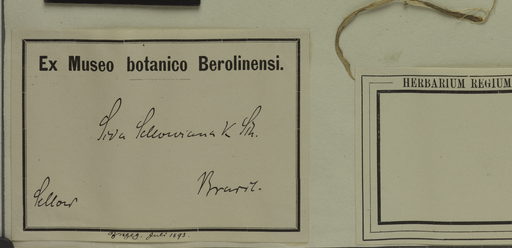 Ex Museo botanico Berolinensi.
Sida Sellowiana K Sch.
Sellow
Brasil.
Juli 1893.
HERBARIUM REGIUM